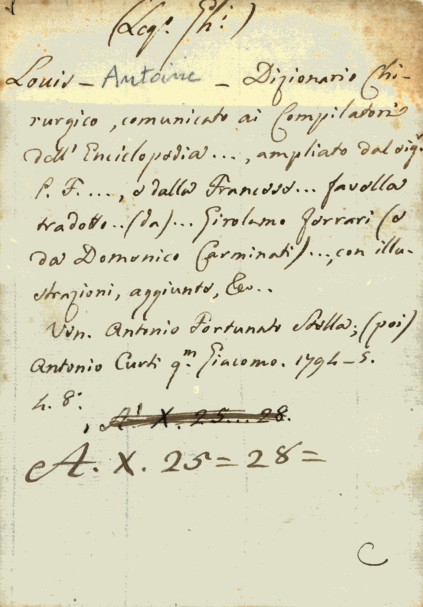 (Legº. Ch:)
Louis - Antoine - Dizionario Chi-
rurgico, comunicato ai Compilatori
dell' Enciclopedia..., ampliato dal sigr.
P. F. ..., e dalla Francese... favella
tradotto.. (da)... Girolamo Ferrari (e
da Domenico Carminati)..., con illu-
strazioni, aggiunte, &c..
Ven. Antonio Fortunato Stella; (poi)
Antonio Curti q.m Giacomo. 1794-5.
4. 8º.
A' X. 25... 28.
A. X. 25 = 28 =
C